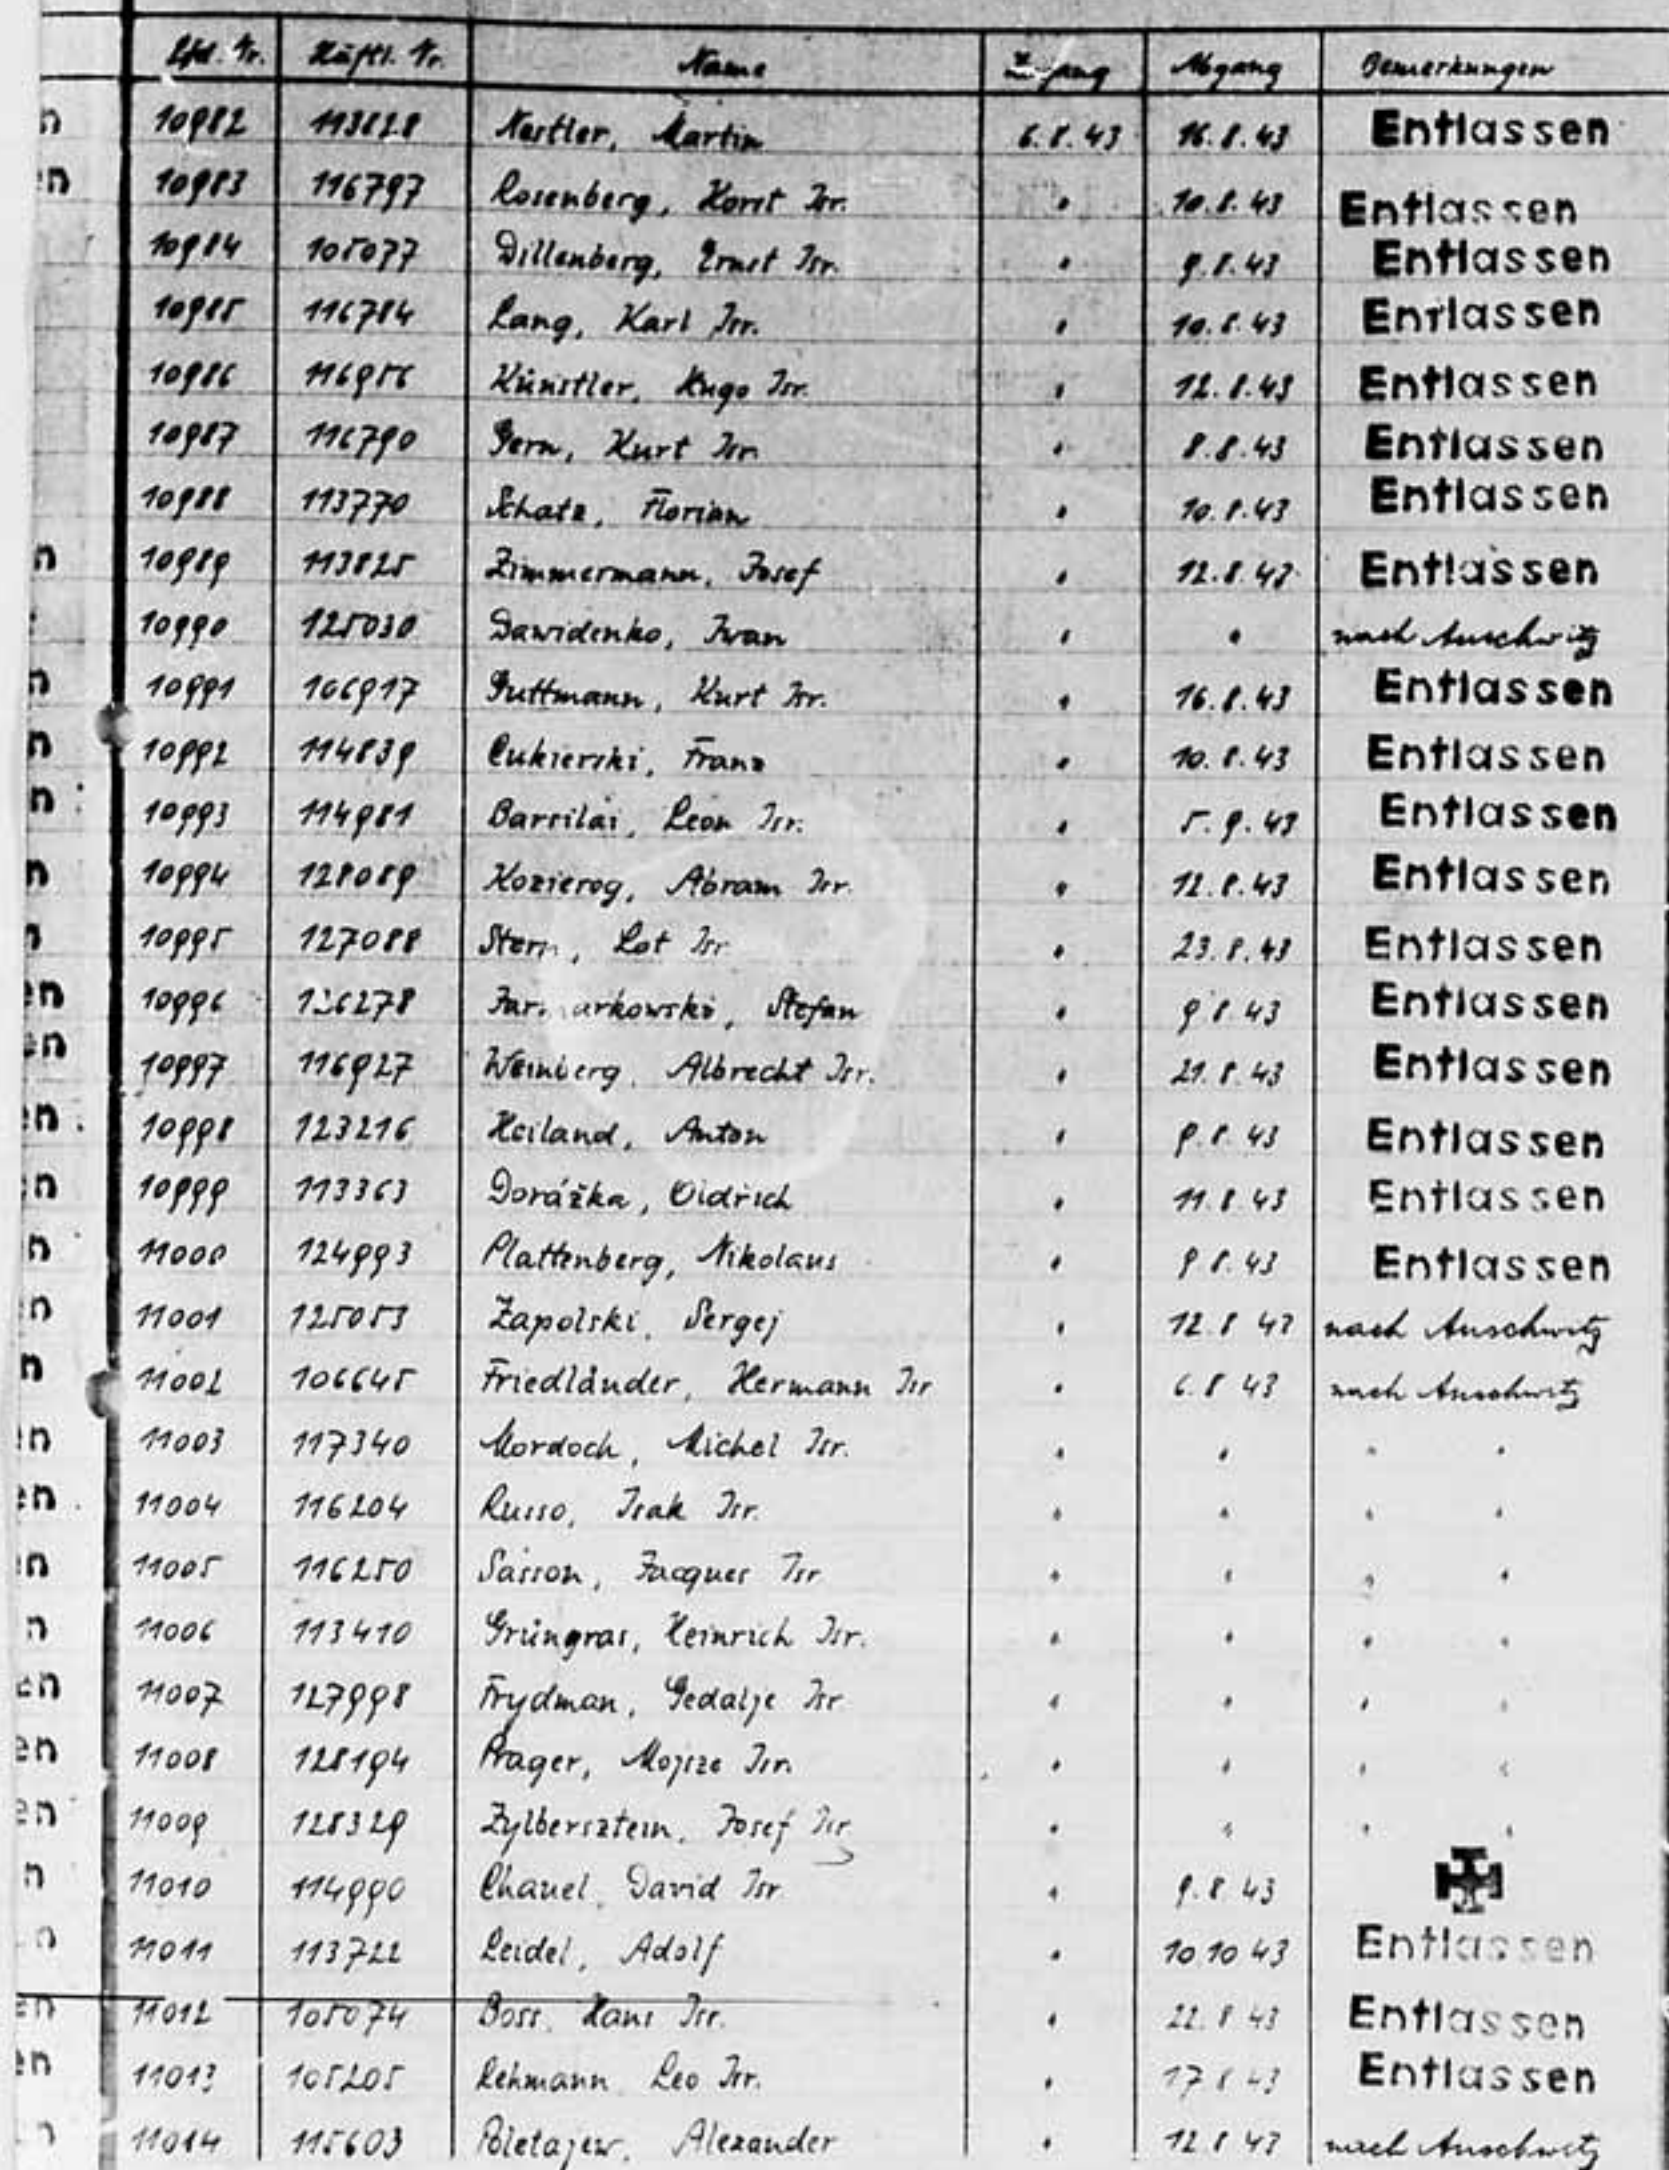 Lfd. Nr. Häftl. Nr. Name Zugang Abgang Bemerkungen
10982 113828 Nestler, Martin 6.8.43 16.8.43 Entlassen
10983 116797 Rosenberg, Horst Isr. " 10.8.43 Entlassen
10984 105077 Dillenberg, Ernst Isr. " 9.8.43 Entlassen
10985 116784 Lang, Karl Isr. " 10.8.43 Entlassen
10986 116956 Künstler, Hugo Isr. " 12.8.43 Entlassen
10987 116790 Gern, Kurt Isr. " 8.8.43 Entlassen
10988 113770 Schatz, Florian " 10.8.43 Entlassen
10989 113825 Zimmermann, Josef " 12.8.43 Entlassen
10990 125030 Dawidenko, Iwan " " nach Auschwitz
10991 106917 Guttmann, Kurt Isr. " 16.8.43 Entlassen
10992 114839 Cukierski, Franz " 10.8.43 Entlassen
10993 114981 Barsilai, Leon Isr. " 5.9.43 Entlassen
10994 128089 Kozierog, Abram Isr. " 12.8.43 Entlassen
10995 127088 Stern, Lot Isr. " 23.8.43 Entlassen
10996 Stefan " 9.8.43 Entlassen
10997 116927 Weinberg, Albrecht Isr. " 21.8.43 Entlassen
10998 123216 Heiland, Anton " 9.8.43 Entlassen
10999 113363 Dorážka, Oldřich " 11.8.43 Entlassen
11000 124993 Plattenberg, Nikolaus " 9.8.43 Entlassen
11001 125053 Zapolski, Sergej " 12.8.43 nach Auschwitz
11002 106645 Friedländer, Hermann Isr " 6.8.43 nach Auschwitz
11003 117340 Mordoch, Michel Isr. " " " "
11004 116204 Russo, Isak Isr. " " " "
11005 116250 Sasson, Jacques Isr " " " "
11006 113410 Grüngras, Heinrich Isr. " " " "
11007 127998 Frydman, Gedalje Isr " " " "
11008 128194 Prager, Mojsze Isr. " " " "
11009 128329 Zylbersztein, Josef Isr " " " "
11010 114990 Chauel, David Isr " 9.8.43
11011 113722 Leidel, Adolf " 10.10.43 Entlassen
11012 105074 Boss, Hans Isr. " 22.8.43 Entlassen
11013 105205 Lehmann Leo Isr. " 17.8.43 Entlassen
11014 115603 Poletajew, Alexander " 12.8.43 nach Auschwitz